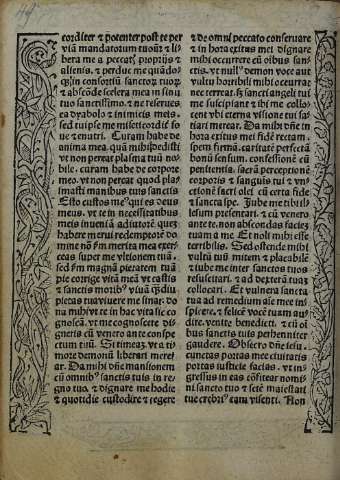 corditer & potenter post te per
viā mandatorum tuoꝝ & li
bera me a peccatꝭ proprijs &
alienis. & perduc me quādo
& abscōde scelera mea in sinu
tuo sanctissimo. & ne reserues
ea dyabolo & inimicis meis.
sed tuipse me misericordit̄ so
ue & enutri. Curam habe de
anima mea. quā mihi dedisti
vt non pereat plasma tuū no
bile. curam habe de corpore
meo. vt non pereat quod plas
masti manibus tuis sanctis
Esto custos meꝰ qui es deus
meus. vt te in necessitatibus
meis inueniā adiutorē quem
habere merui redemptorē do
mine nō scdm merita mea exer
ceas super me vltionem tuā.
sed scdm magnā pietatem tuā
pietas tua viuere me sinat. do
na mihi vt te in hac vita sic co
gnoscā. vt me cognoscere dig
neris cū venero ante conspe
ctum tuū. Si timeaꝫ vt a ti
more demonū liberari mere
ar. Da mihi dn̄e mansionem
cū omnibꝰ sanctis tuis in re
gno tuo. & dignare me hodie
& quotidie custodire & regere
& de omni peccato conseruare
& in hora exitus mei dignare
mihi occurrere cū oībus san
ctis. vt nullꝰ demon voce aut
vultu horribili mihi occurrat
nec terreat. sed sancti angeli tui
me suscipiant & ibi me collo
cent vbi eterna visione tui sa
tiari merear. Da mihi dn̄e in
hora exitus mei fidē rectam.
spem firmā. caritatē perfectā
bonū sensum. confessionē cū
penitentia. sacrā perceptionē
corporis & sanguis tui & vn
ctionē sacri olei cū certa fide
& sancta spe. Jube me tibi il
lesum presentari. & cū venero
ante te. non abscondas faciē
tuam a me Et noli mihi esse
terribilis. Sed ostende mihi
vultū tuū mitem & placabilē
& iube me inter sanctos tuos
resuscitari. & ad dexterā tuaꝫ
collocari. Et vulnera sancta
tua ad remedium aīe mee in
spicere. & felicē vocē tuam au
dire. venite benedicti. & cū oī
bus sanctis tuis perhenniter
gaudere. Obsecro dn̄e iesu.
cunctas portas mee ciuitatis
portas iusticie facias. vt in
gressus in eas cōfitear nomi
ni sancto tuo & sctē maiestati
tue crebriꝰ eam visenti. Non